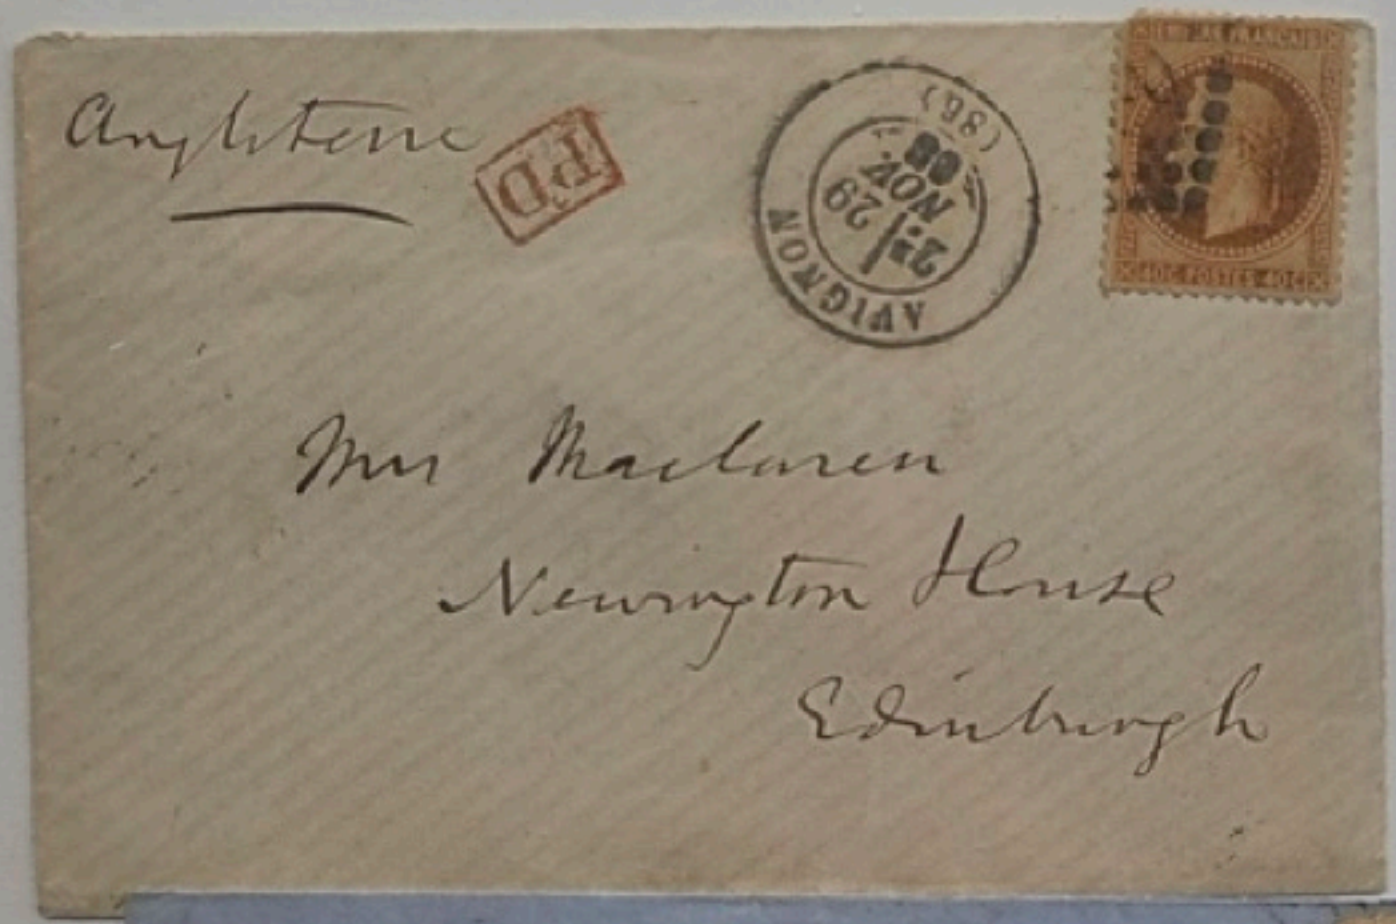 Angleterre
PD
AVIGNON
2E
29
NOV.
68
(86)
EMPIRE FRANÇAIS
40C POSTES 40C
Mrs Maclaren
Newington House
Edinburgh